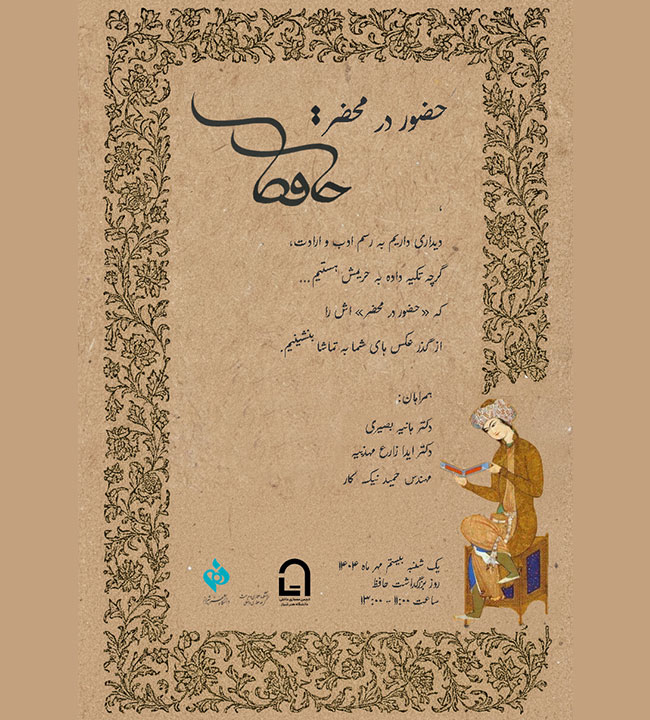 حضور در محضر:
حافظ
،
دیداری داریم به رسم ادب و ارادت،
گرچه تکیه داده به حریمش هستیم...
که «حضور در محضر» اش را
از گذر عکس های شما به تماشا بنشینیم.
همراهان:
دکتر هانیه بصیری
دکتر آیدا زارع مهذبیه
مهندس حمید نیک کار
یک شنبه بیستم مهر ماه ۱۴۰۴
روز بزرگداشت حافظ
ساعت ۱۱:۰۰ - ۱۳:۰۰
انجمن معماری داخلی
دانشگاه هنر شیراز